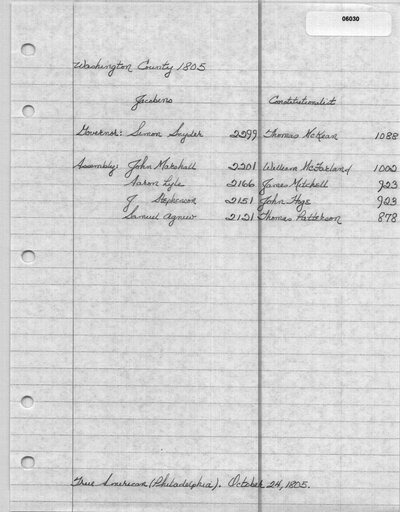 06030
Washington County 1805
Jacobins Constitutionalist
Governor: Simon Snyder 2299 Thomas McKean 1088
Assembly: John Marshall 2201 William McFarland 1002
Aaron Lyle 2166 James Mitchell 923
J Stephenson 2151 John Hoge 923
Samuel Agnew 2121 Thomas Patterson 878
True American (Philadelphia). October 24, 1805.